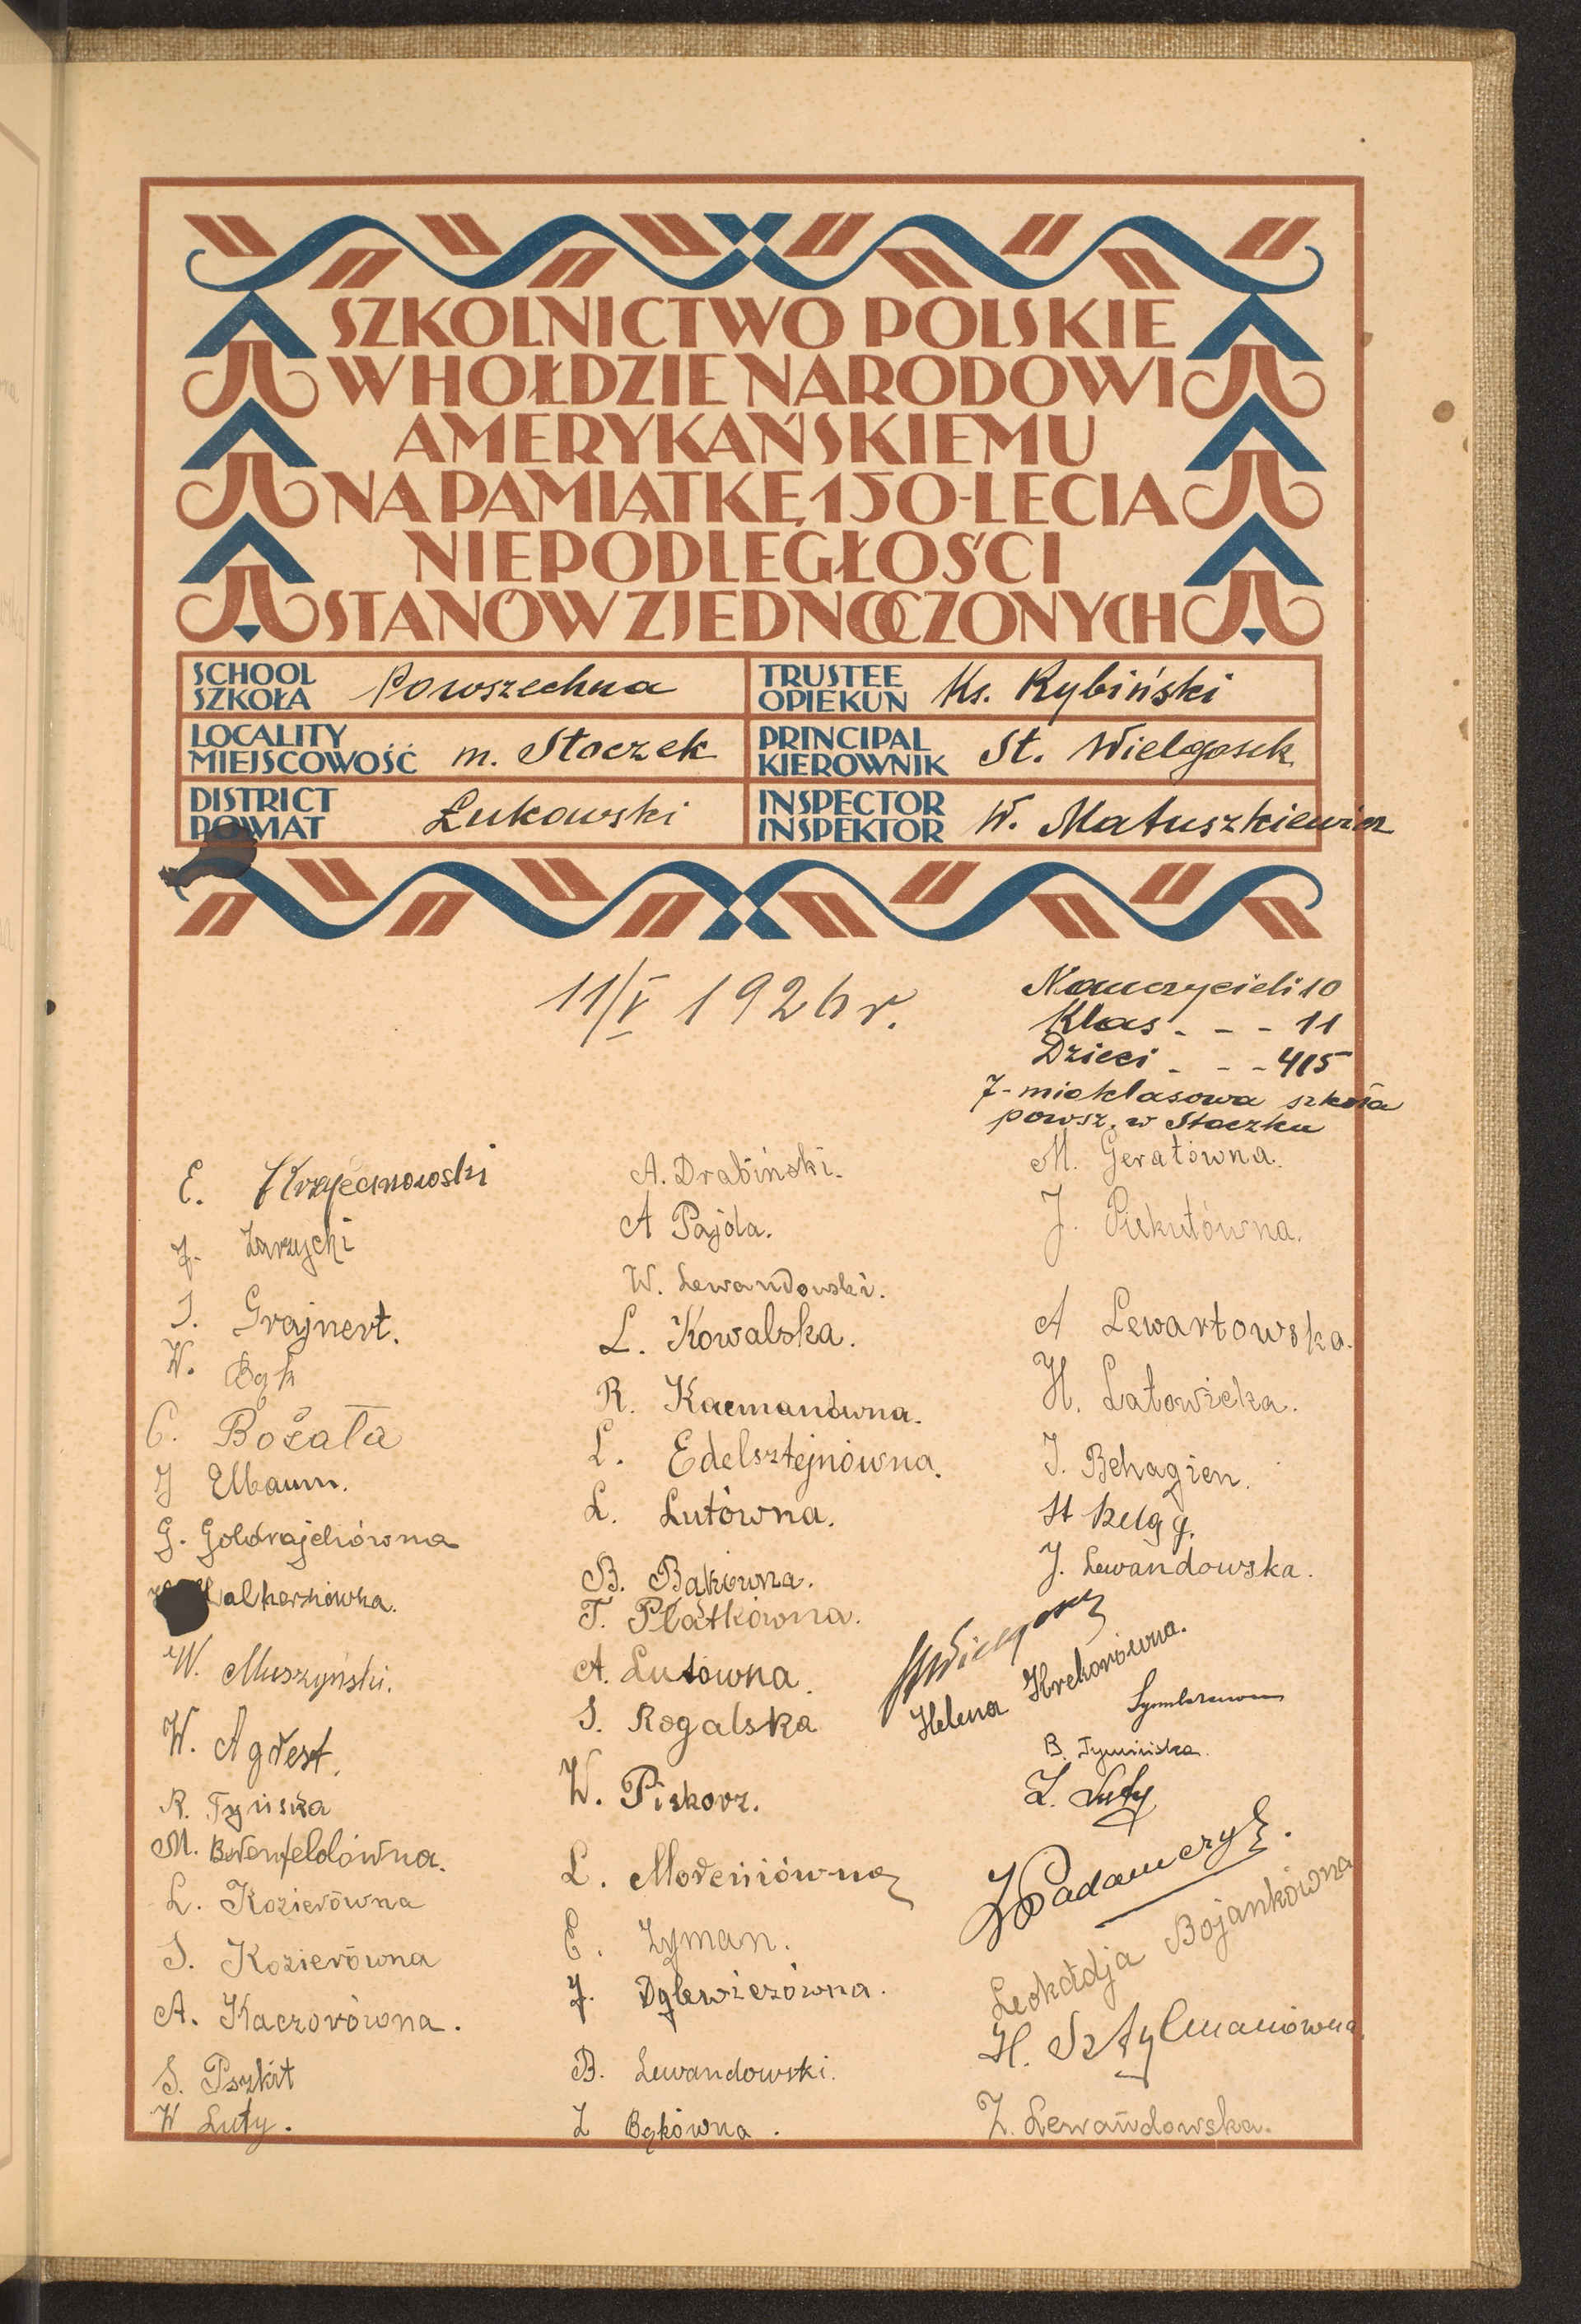 SZKOLNICTWO POLSKIE
W HOŁDZIE NARODOWI
AMERYKAŃSKIEMU
NA PAMIĄTKĘ 150-LECIA
NIEPODLEGŁOŚCI
STANÓW ZJEDNOCZONYCH
SCHOOL
SZKOŁA
Powszechna
TRUSTEE
OPIEKUN
Ks. Rybiński
LOCALITY
MIEJSCOWOŚĆ
m. Stoczek
PRINCIPAL
KIEROWNIK
St. Wielgosek
DISTRICT
POWIAT
Łukowski
INSPECTOR
INSPEKTOR
W. Matuszkiewicz
11/V 1926 r.
Nauczycieli 10
Klas - - - 11
Dzieci - - - 415
7-mioklasowa szkoła
powsz. w Stoczku
E.
J. Zarzycki
S. Grajnert.
W. Bąk
C. Bożata
J Elbaum.
G. Goldrajchówna
W. Muszyński.
W. Agrest.
R. Tyńska
M.
L. Kozierówna
S. Kozierówna
A. Kaczorówna.
S. Pszkit
W Luty.
A. Drabiński.
A Pajda.
W. Lewandowski.
L. Kowalska.
R. Kacmanówna.
L. Edelsztejnówna.
L. Lutówna.
B. Bąkówna.
T. Płatkówna.
A. Lutówna.
S. Rogalska
W. Piskorz.
L. Moreniówna
E. Zyman.
J. Dylewiczówna.
B. Lewandowski.
Z Bąkówna.
M. Geratówna.
J. Piekutówna.
A Lewartowska.
H. Latowicka.
J. Behagien.
St
J. Lewandowska.
Helena
B. Tymińska.
Z. Luty
Leokadja Bojankówna
H. Sztylmanówna
Z. Lewandowska.